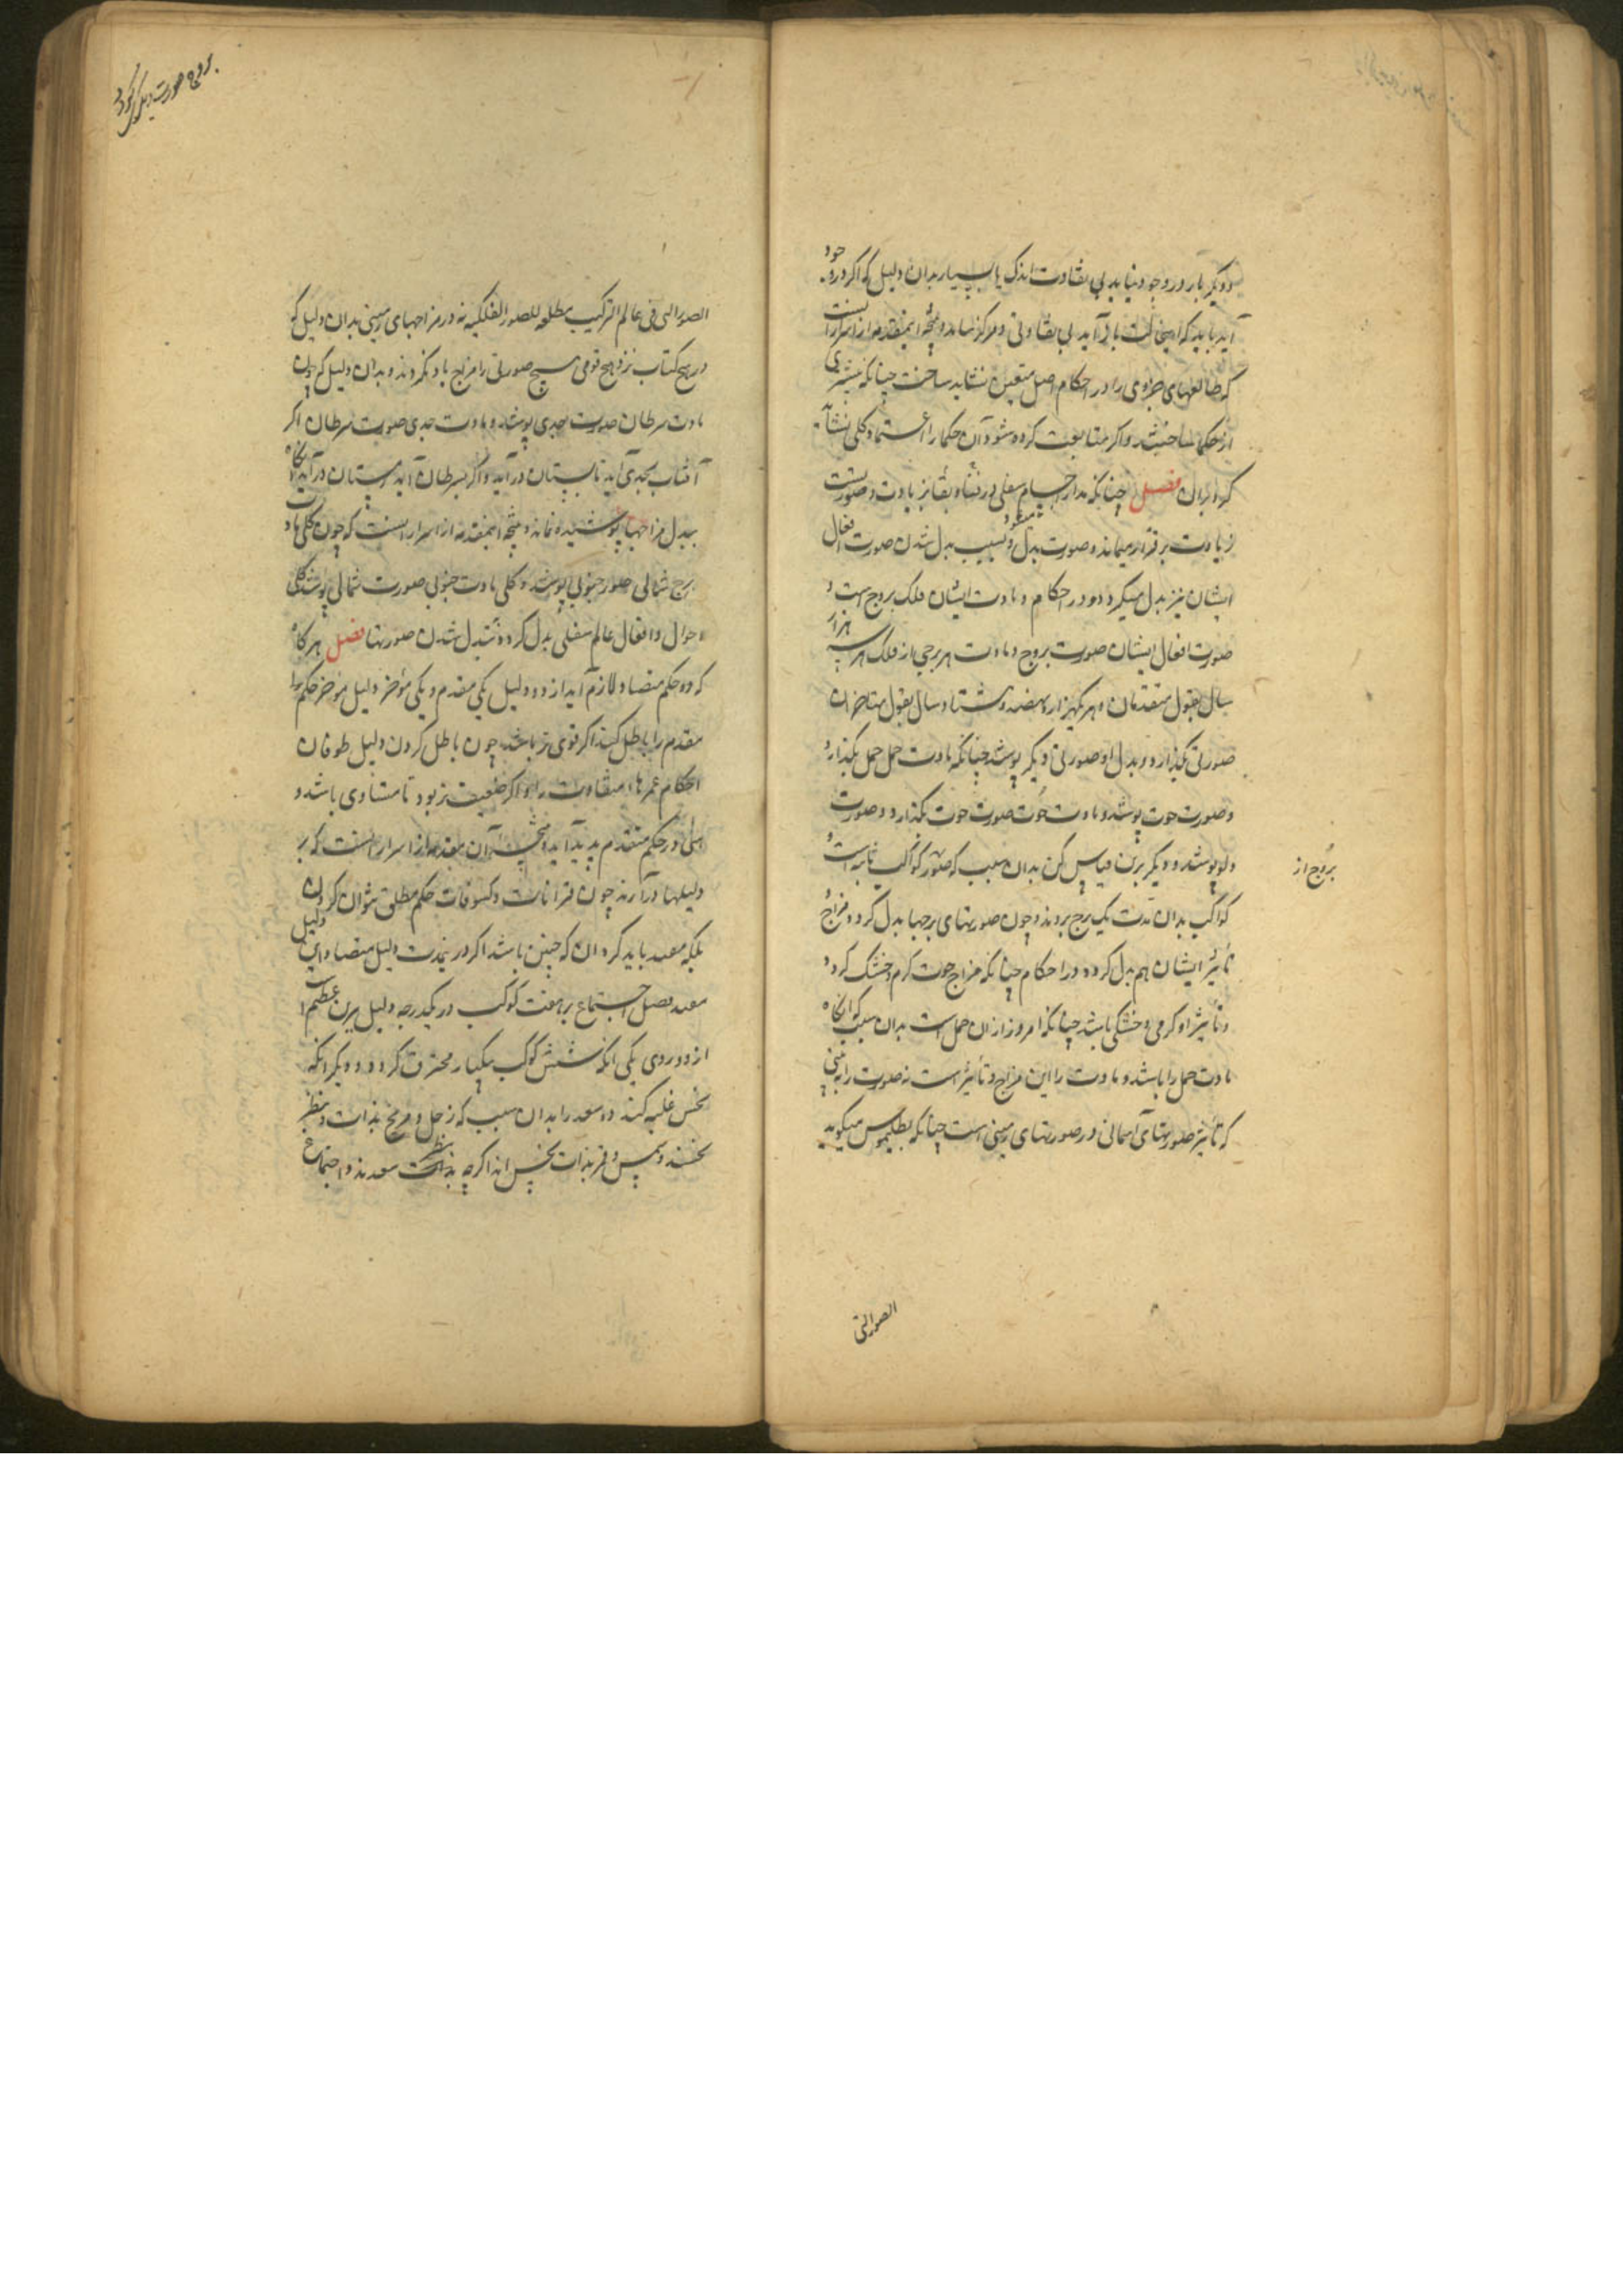 دیگر بار در وجود نیاید بی تفاوت اندک یا بسیار بدان دلیل که اگر در وجود
آید باید که این نسبت باز آید بی تفاوتی و هرگز نیاید و نتیجه این مقدمه از اسرار اینست
که طالعهای جزوی را در احکام اصل متعین نشاید ساخت چنانکه بیشتری
از حکما ساخته‌اند و اگر متابعت کرده شود آن حکما را اعتماد کلی نشاید
کرد بران فصل چنانکه مدار اجسام سفلی در فنا و بقا بر مادت و صورتست
مادت برقرار میماند و صورت بدل میشود و بسبب بدل شدن صورت افعال
ایشان نیز بدل میگردد و در احکام و مادت ایشان فلک بروج است و
صورت افعال ایشان صورت بروج و مادت هر برجی از فلک هر سه هزار
سال بقول متقدمان و هر یکهزار و هفصد و هشتاد سال بقول متاخران
صورتی بگذارد و بدل او صورتی دیگر پوشد چنانکه مادت حمل حمل بگذارد
و صورت حوت پوشد و مادت حوت صورت حوت بگذارد و صورت
دلو پوشد و دیگر برین قیاس کن بدان سبب که صور کواکب ثابته است و
بروج از
کواکب بدان مدت یک برج بروند و چون صورتهای برجها بدل گردد مزاج و
تأثیر ایشان هم بدل گردد در احکام چنانکه مزاج حوت گرم و خشک گردد
و تأثیر او گرمی و خشکی باشد چنانکه امروز ازان حمل است بدان سبب که آنگاه
مادت حمل را باشد و مادت را این مزاج و تأثیر است نه صورت را نه بینی
که تأثیر صورتهای آسمانی در صورتهای زمینی است چنانکه بطلیموس میگوید
الصور التی
بروج صورت دیگر گردد
الصور التی فی عالم الترکیب مطیعه للصور الفلکیه نه در مزاجهای زمینی بدان دلیل که
در هیچ کتاب نزد هیچ قومی هیچ صورتی را مزاج یاد نکردند و بدان دلیل که چون
مادت سرطان صورت جدی پوشد و مادت جدی صورت سرطان اگر
آفتاب بجدی آید تابستان درآید و اگر بسرطان آید زمستان درآید آنگاه
تبدل مزاجها پوشیده نماند و نتیجه این مقدمه از اسرار اینست که چون کلی مادت
برج شمالی صور جنوبی پوشد و کلی مادت جنوبی صورت شمالی پوشد کلی
احوال و افعال عالم سفلی بدل گردد بتبدل شدن صورتها فصل هرگاه
که دو حکم متضاد لازم آید از دو دلیل یکی مقدم و یکی مؤخر دلیل مؤخر حکم
مقدم را باطل کند اگر قوی تر باشد چون باطل کردن دلیل طوفان
احکام عمرها متفاوت را و اگر ضعیف تر بود تا متساوی باشد و
در حکم متقدم پدید آید و نتیجه آن مقدمه از اسرار اینست که بر
دلیلها درآرند چون قرانات و کسوفات حکم مطلق نتوان کردن
بلکه مقید باید کرد آن که چنین باشد اگر درین مدت دلیل متضاد این دلیل
فصل اجتماع هر هفت کوکب در یکدرجه دلیل عظیم است
از دو روی یکی آنکه شش کوکب بیکبار محترق گردد و دیگر آنکه
نحس غلبه کند ده سعد را بدان سبب که زحل و مریخ بذات و بنظر
نحسند و شمس و قمر بذات نحس اند اگرچه بنظر سعدند و اجتماع